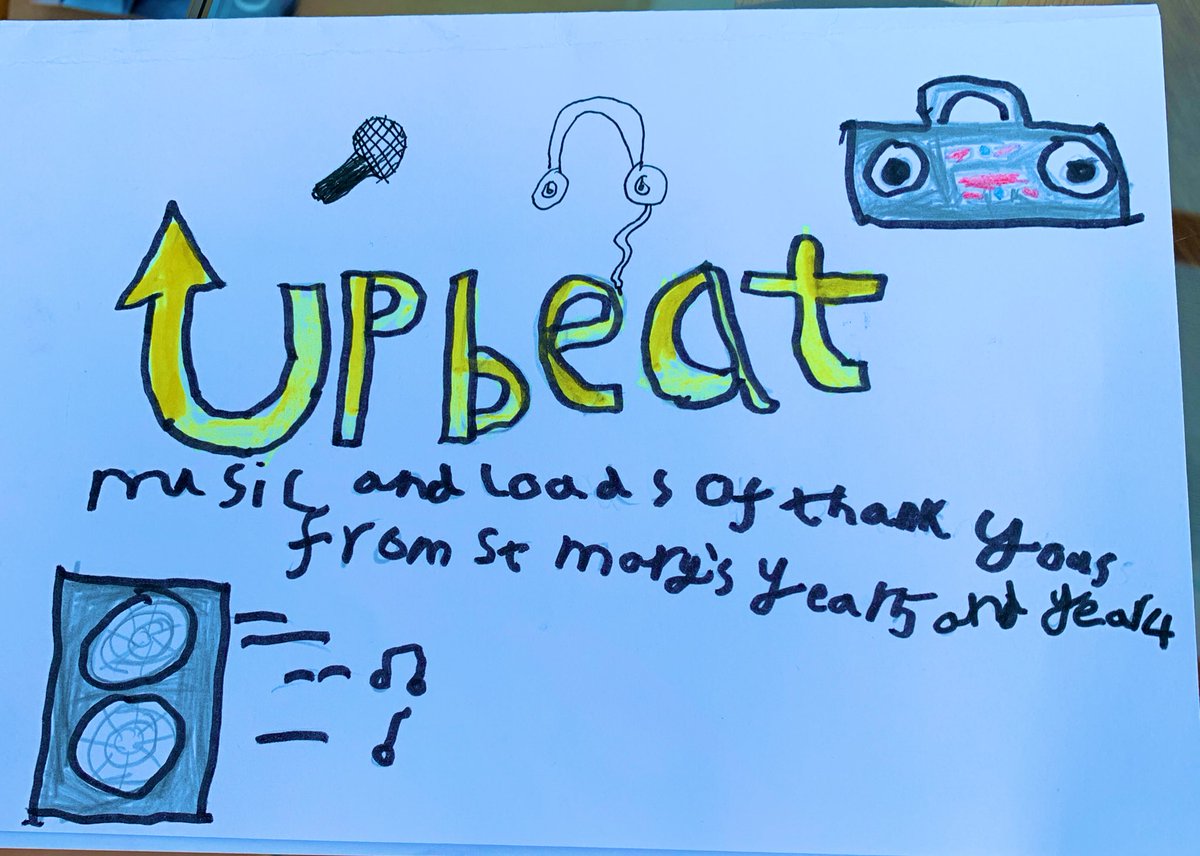 Upbeat
music and loads of thank yous
from St Mary's year5 and year4